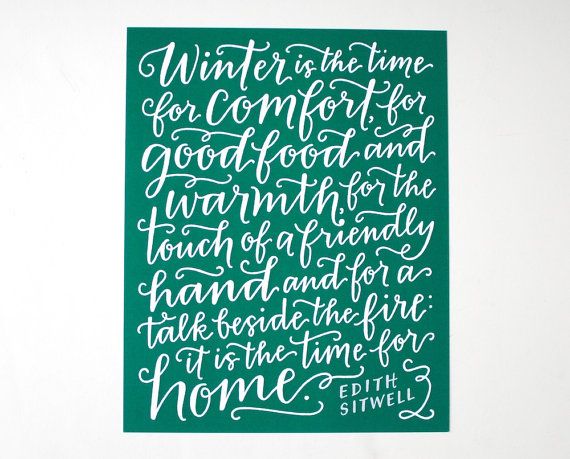 Winter is the time
for comfort, for
good food and
warmth, for the
touch of a friendly
hand and for a
talk beside the fire:
it is the time for
home.
EDITH
SITWELL